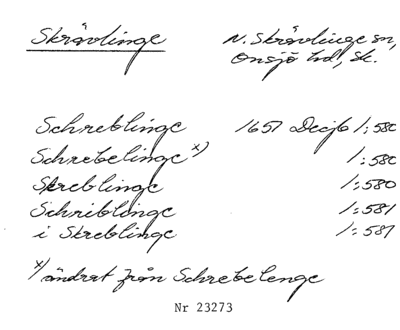 Skrävlinge N. Skrävlinge sn,
Onsjö hd, Sk.
Schreblinge 1651 Decjb 1:580
Schrebelinge x) 1:580
Skreblinge 1:580
Schriblinge 1:581
i Skreblinge 1:581
x) ändrat från Schrebelenge
Nr 23273